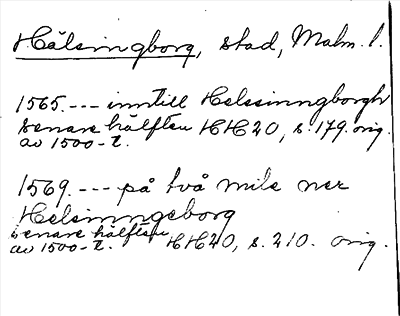 Hälsingborg, stad, Malm. l.
1565. --- inntill Helssinngborgh
senare hälften HH20, s. 179. orig.
av 1500-t.
1569. --- på två mile ner
Helsinngeborg
senare hälften
av 1500-t. HH20, s. 210. orig.